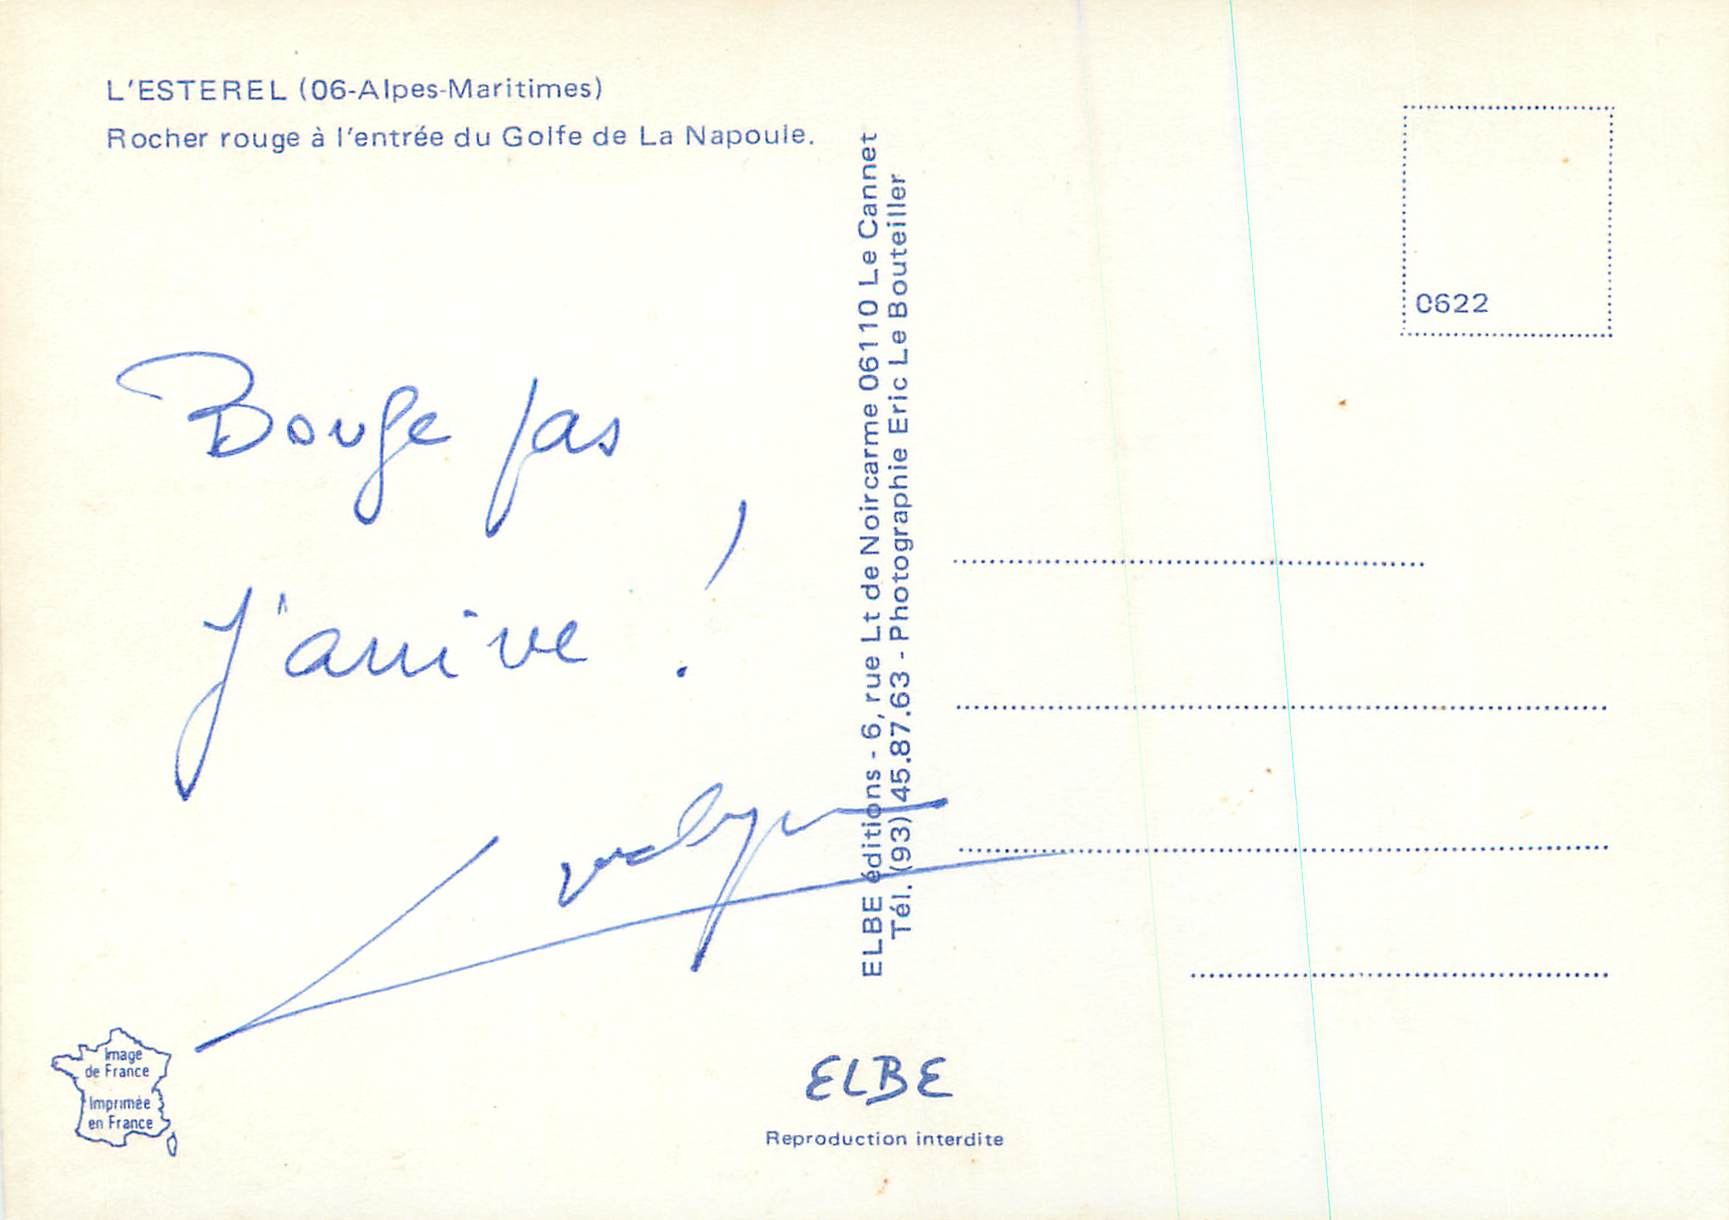 L'ESTEREL (06-Alpes-Maritimes)
Rocher rouge à l'entrée du Golfe de La Napoule.
Bouge pas
J'arrive !
ELBE éditions - 6, rue Lt de Noircarme 06110 Le Cannet
Tél. (93) 45.87.63 - Photographie Eric Le Bouteiller
0622
Image
de France
Imprimée
en France
ELBE
Reproduction interdite